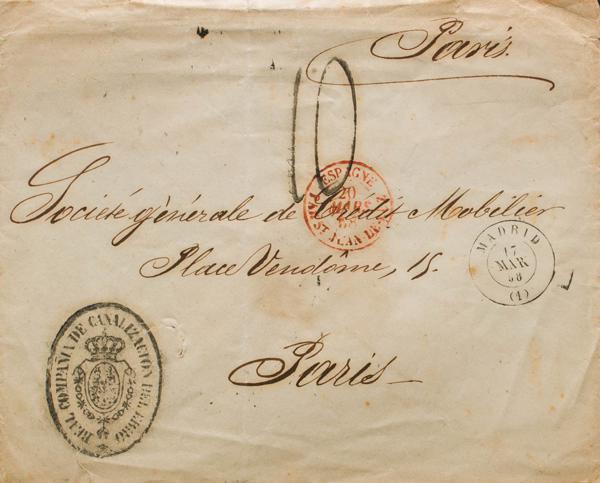 Paris.
10
ESPAGNE
20
MARS
58
ST JEAN DE
Société générale de Crédit Mobilier
Place Vendôme, 15.
MADRID
17
MAR
58
(1)
REAL COMPAÑIA DE CANALIZACION DEL EBRO
Paris